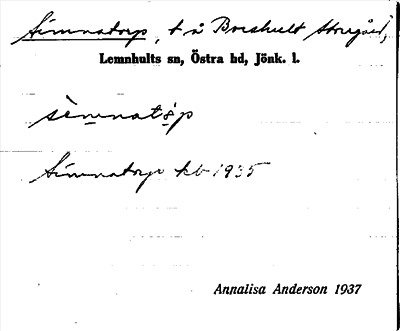 Simnatorp, t å Boeshult Storegård,
Lemnhults sn, Östra hd, Jönk. l.
sìmnatà̀p
Simnatorp kb 1935
Annalisa Anderson 1937